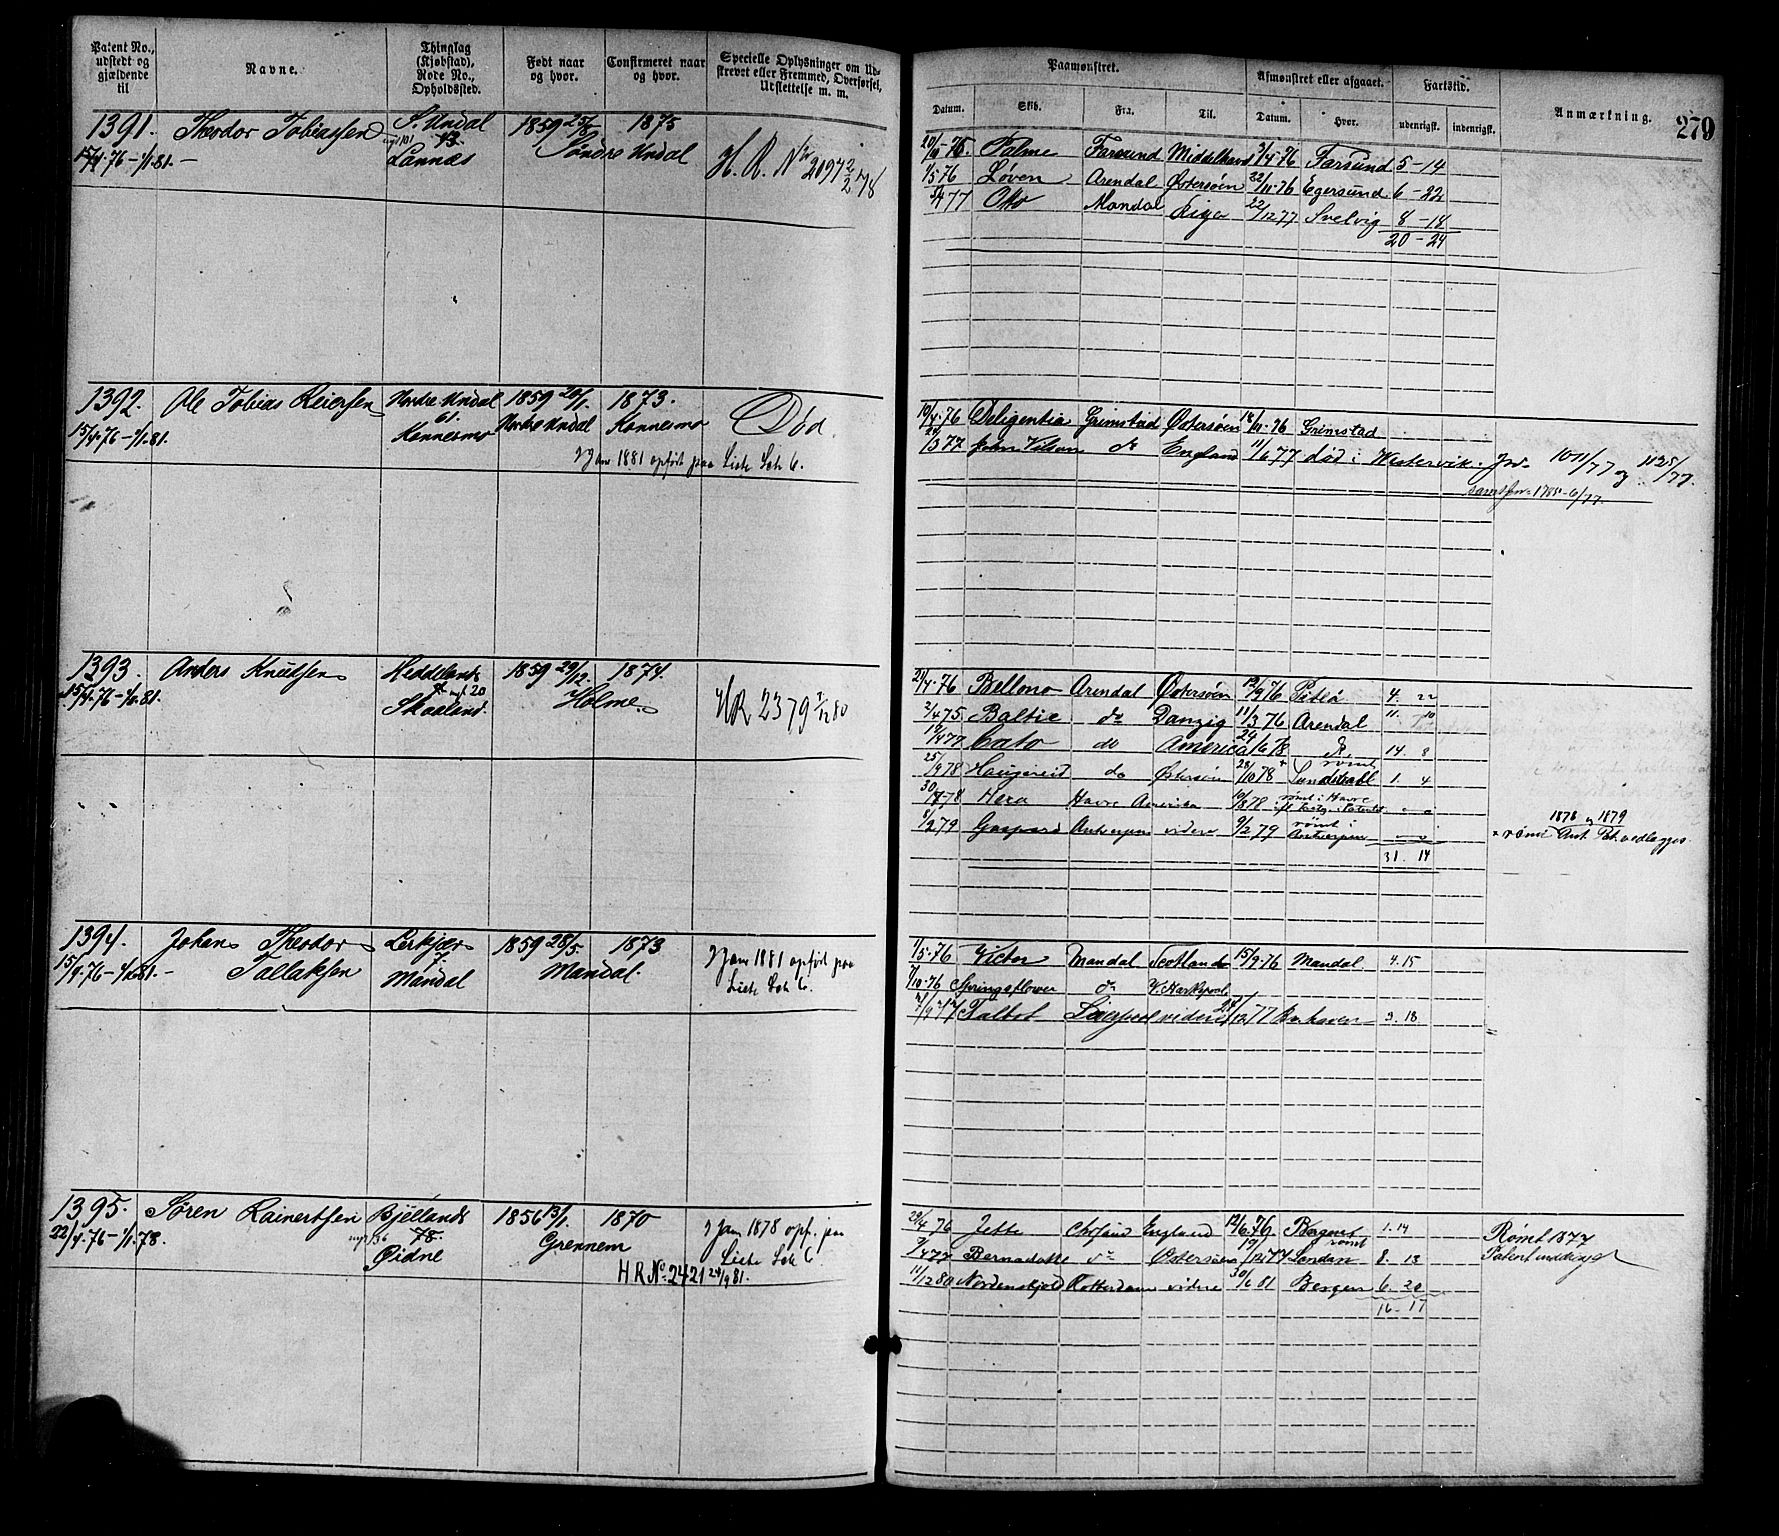 Patent No., udstedt og gjældende til
Navne.
Thinglag (Kjøbstad), Rode No., Opholdssted.
Født naar og hvor.
Confirmeret naar og hvor.
Specielle Oplysninger om Udskrevet eller Fremmed, Overførsel, Udslettelse m. m.
Paamønstret.
Afmønstret eller afgaaet.
Fartstid.
Anmærkning.
279
Datum.
Skib.
Fra.
Til.
Datum.
Hvor.
udenrigsk.
indenrigsk.
1391. Theodor Tobiassen S. Undal 1859 25/8 1875
15/4.76 – 1/1.81. – Lannæs Søndre Undal H. R. No 2097 2/2 78
Palme Farsund Middelhavet 3/4.76 Farsund 5 – 14
1/5 76 Løven Arendal Østersøen 22/11.76 Egersund 6 – 22
77 Otto Mandal Riga 22/12 77 Svelvig 8 – 18
20 – 24
1392. Ole Tobias Reiersen Nordre Undal 1859 20/1. 1873.
15/4.76 – 1/1.81. 61. Konnesmo Nordre Undal Konnesmo Død.
2 Jan 1881 opført paa Liste Lit 6.
19/4.76 Deligentia Grimstad Østersøen 14/10.76 Grimstad
24/3 77 John Vilson do England 11/6 77 død i Westervik. Jr. 1011/77 og 1125/77.
samt Jr. 1785 – 6/77.
1393. Anders Knudsen Heddeland 1859 29/12. 1874.
15/4.76 – 1/1.81. 20 Skaaland. Holme HR 2379 /12 80
21/4.76 Bellona Arendal Østersøen 19/9 76 Piteå 4. 22
2/4 75. Baltic do Danzig 11/3 76 Arendal 11. 10
Cato do America 24/6 78 do 14. 8
25/9 78 Haugereid do Østersøen 28/10 78 rømt Sundsvall 1. 4
30/7.78 Hera Havre Amerika 10/8 78 rømt i Havre
8/2 79 Gaspard Antwerpen videre 9/2 79 rømt i Antwerpen
31. 14
1878 og 1879
rømt Ant. Pat. vedlægges.
1394. Johan Theodor Tallaksen Lerkjær 1859 28/5. 1873
15/9.76 – 1/1.81. – 7. Mandal Mandal.
2 Jan 1881 opført paa Liste Lit 6.
1/5.76 Victor Mandal Scotland 15/9.76 Mandal. 4. 15
/10.76 Springflower do V. Hartlepool
Talbot Liverpool videre /12 77 Br.haven 3. 18
1395. Søren Rainertsen Bjelland 1856 13/1. 1870
22/4.76 – 1/1.78. 78. Eidne Grennem
2 Jan 1878 opf. paa Liste Lit 6
H.R. No. 2421 24/9 81.
29/4 76 Jette Chrsand England 12/6.76 Bergen 1. 14
/4 77 Bernadotte do Østersøen 19/12 77 rømt London 8. 13
11/12 80 Nordenskjold Rotterdam videre 30/6 81 Bergen 6. 20
16 – 17
Rømt 1877
Patent inddraget